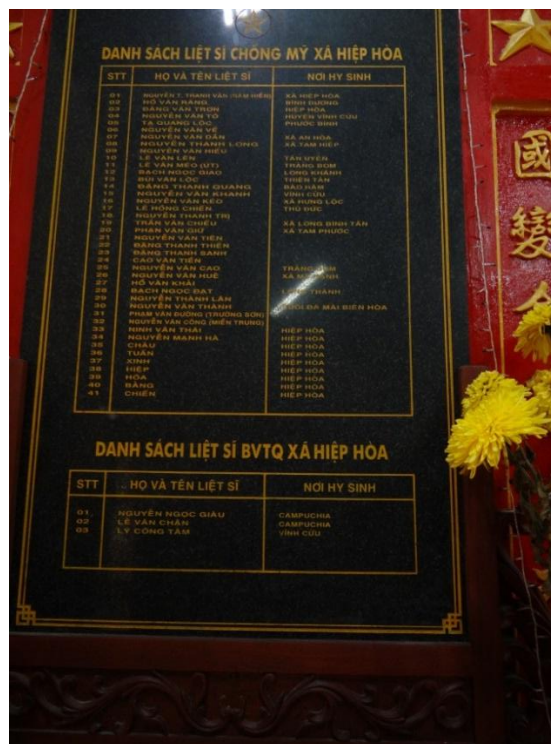 DANH SÁCH LIỆT SĨ CHỐNG MỸ XÃ HIỆP HÒA
STT HỌ VÀ TÊN LIỆT SĨ NƠI HY SINH
01 NGUYỄN T. THANH VÂN XÃ HIỆP HÒA
02 HỒ VĂN NĂNG BÌNH DƯƠNG
03 ĐẶNG VĂN TRƠN HIỆP HÒA
04 NGUYỄN VĂN TỎ HUYỆN VĨNH CỬU
05 TẠ QUANG LỘC PHƯỚC BÌNH
06 NGUYỄN VĂN VỀ
07 NGUYỄN VĂN DẦN XÃ AN HÒA
08 NGUYỄN THANH LONG XÃ TAM HIỆP
09 NGUYỄN VĂN HIẾU
10 LÊ VĂN LÉN TÂN UYÊN
11 LÊ VĂN MÉO (ÚT) TRẢNG BOM
12 BẠCH NGỌC GIAO LONG KHÁNH
13 BÙI VĂN LỘC THIỆN TÂN
14 ĐẶNG THANH QUANG BÀU HÀM
15 NGUYỄN VĂN KHANH VĨNH CỬU
16 NGUYỄN VĂN KÉO XÃ HƯNG LỘC
17 LÊ HỒNG CHIẾN THỦ ĐỨC
18 NGUYỄN THANH TRỊ
19 TRẦN VĂN CHIÊU XÃ LONG BÌNH TÂN
20 PHAN VĂN GIỮ XÃ TAM PHƯỚC
21 NGUYỄN VĂN TIÊN
22 ĐẶNG THANH THIỆN
23 ĐẶNG THANH SANH
24 CAO VĂN TIÊN
25 NGUYỄN VĂN CAO
26 NGUYỄN VĂN HUÊ XÃ
27 HỒ VĂN KHẢI
28 BẠCH NGỌC ĐẠT LONG THÀNH
29 NGUYỄN THÀNH LÂN
30 NGUYỄN VĂN THÀNH ĐÁ MÀI BIÊN HÒA
31 PHẠM VĂN ĐƯỜNG (TRƯỜNG SƠN)
32 NGUYỄN VĂN CÔNG (MIỀN TRUNG)
33 NINH VĂN THÁI HIỆP HÒA
34 NGUYỄN MẠNH HÀ HIỆP HÒA
35 CHÂU HIỆP HÒA
36 TUẤN HIỆP HÒA
37 XINH HIỆP HÒA
38 HIỆP HIỆP HÒA
39 HÓA HIỆP HÒA
40 BẰNG HIỆP HÒA
41 CHIẾN HIỆP HÒA
DANH SÁCH LIỆT SĨ BVTQ XÃ HIỆP HÒA
STT HỌ VÀ TÊN LIỆT SĨ NƠI HY SINH
01 NGUYỄN NGỌC GIÀU CAMPUCHIA
02 LÊ VĂN CHẨN CAMPUCHIA
03 LÝ CÔNG TÂM VĨNH CỬU
國
變